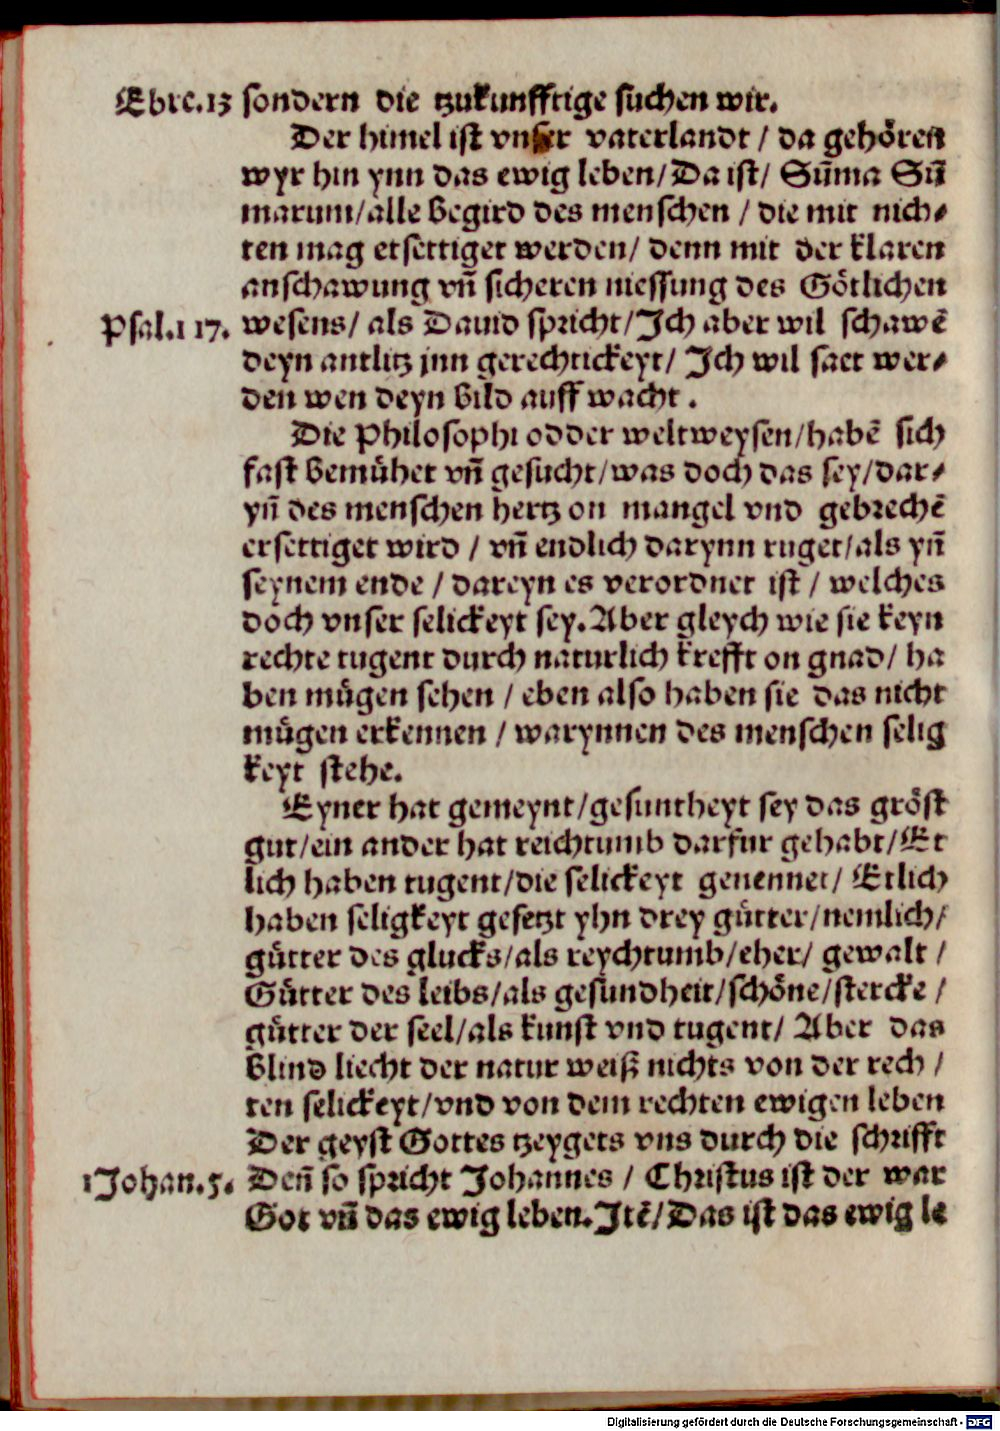 Ebre.13 sondern die tzukunfftige suchen wir.
Der himel ist vnser vaterlandt / da gehören
wyr hin ynn das ewig leben/ Da ist/ Sum̃a Sum̃
marum/alle begird des menschen / die mit nich⸗
ten mag ersettiget werden/ denn mit der klaren
anschawung vñ sicheren niessung des Götlichen
Psal.117. wesens/ als Dauid spricht/Ich aber wil schawē
deyn antlitz jnn gerechtickeyt/ Ich wil satt wer⸗
den wen deyn bild auff wacht .
Die Philosophi odder weltweysen/habē sich
fast bemühet vñ gesucht/was doch das sey/dar⸗
yñ des menschen hertz on mangel vnd gebrechē
ersettiget wird / vñ endlich darynn ruget/als yñ
seynem ende / dareyn es verordnet ist / welches
doch vnser selickeyt sey. Aber gleych wie sie keyn
rechte tugent durch naturlich krefft on gnad/ ha
ben mügen sehen / eben also haben sie das nicht
mügen erkennen / warynnen des menschen selig
keyt stehe.
Eyner hat gemeynt/gesuntheyt sey das gröst
gut/ein ander hat reichtumb darfur gehabt/Et
lich haben tugent/die selickeyt genennet/ Etlich
haben seligkeyt gesetzt yhn drey gütter/nemlich/
gütter des glucks/als reychtumb/eher/ gewalt /
Gütter des leibs/als gesundheit/schöne/stercke /
gütter der seel/als kunst vnd tugent/ Aber das
blind liecht der natur weiß nichts von der rech /
ten selickeyt/vnd von dem rechten ewigen leben
Der geyst Gottes tzeygets vns durch die schrifft
1Johan.5. Deñ so spricht Johannes / Christus ist der war
Got vñ das ewig leben. Itē/ Das ist das ewig le
Digitalisierung gefördert durch die Deutsche Forschungsgemeinschaft - DFG